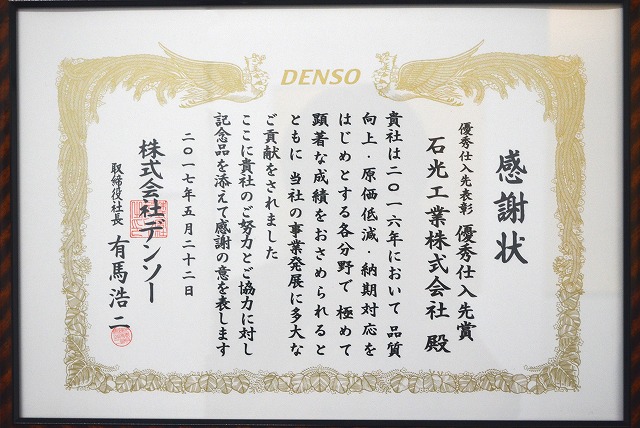 DENSO
感謝状
優秀仕入先表彰 優秀仕入先賞
石光工業株式会社 殿
貴社は二〇一六年において 品質
向上・原価低減・納期対応を
はじめとする各分野で 極めて
顕著な成績をおさめられると
ともに 当社の事業発展に多大な
ご貢献をされました
ここに貴社のご努力とご協力に対し
記念品を添えて感謝の意を表します
二〇一七年五月二十二日
株式会社デンソー
取締役社長 有馬浩二